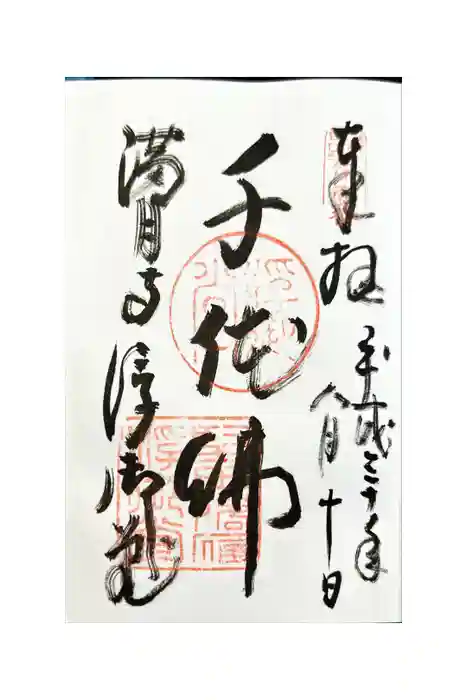 奉拝
平成三十年
八月十日
千体佛
満月寺 浮御堂